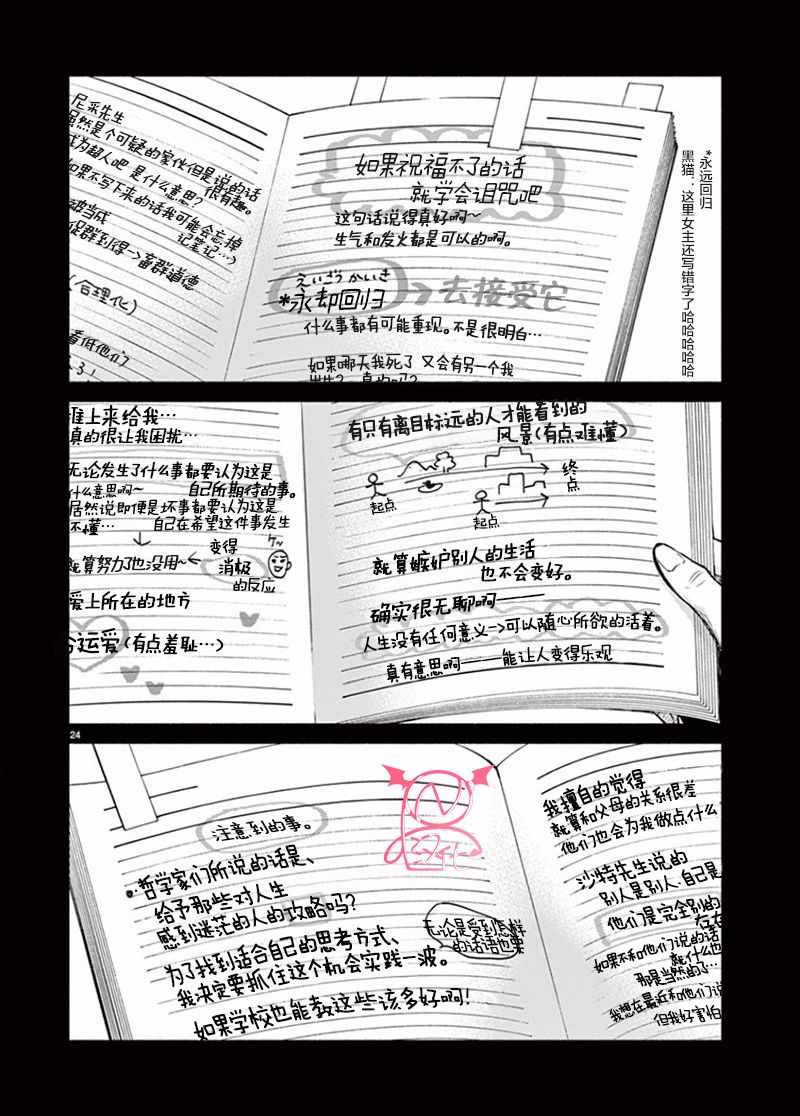 尼采先生
虽然是个可疑的家伙但是说的话
很有趣。
成为超人吧 是什么意思?
如果不写下来的话我可能会忘掉
记笔记…)
被当成
畜群道德
(合理化)
看低他们
如果祝福不了的话
就学会诅咒吧
这句话说得真好啊~
生气和发火都是可以的啊。
えいごうかいき
*永却回归
去接受它
什么事都有可能重现。不是很明白…
如果哪天我死了 又会有另一个我
出生? 真的吗?
*永远回归
黑猫:这里女主还写错字了哈哈哈哈哈
谁上来给我…
真的很让我困扰…
无论发生了什么事都要认为这是
什么意思啊~ 自己所期待的事。
居然说即便是坏事都要认为这是
不懂… 自己在希望这件事发生
就算努力了也没用~
变得
消极
的反应
爱上所在的地方
运爱(有点羞耻…)
有只有离目标远的人才能看到的
风景(有点难懂)
起点
终点
起点
就算嫉妒别人的生活
也不会变好。
确实很无聊啊——
人生没有任何意义→可以随心所欲的活着。
真有意思啊——能让人变得乐观
24
注意到的事。
哲学家们所说的话是、
给予那些对人生
感到迷茫的人的攻略吗?
为了找到适合自己的思考方式、
我决定要抓住这个机会实践一波。
如果学校也能教这些该多好啊!
无论是受到怎样
的话语也要
我擅自的觉得
就算和父母的关系很差
他们也会为我做点什么
沙特先生说的
别人是别人,自己是
他们是完全别的
存在
如果不和他们说的话
就什么也
那是当然的了…
我想在最近和他们说
但我好害怕